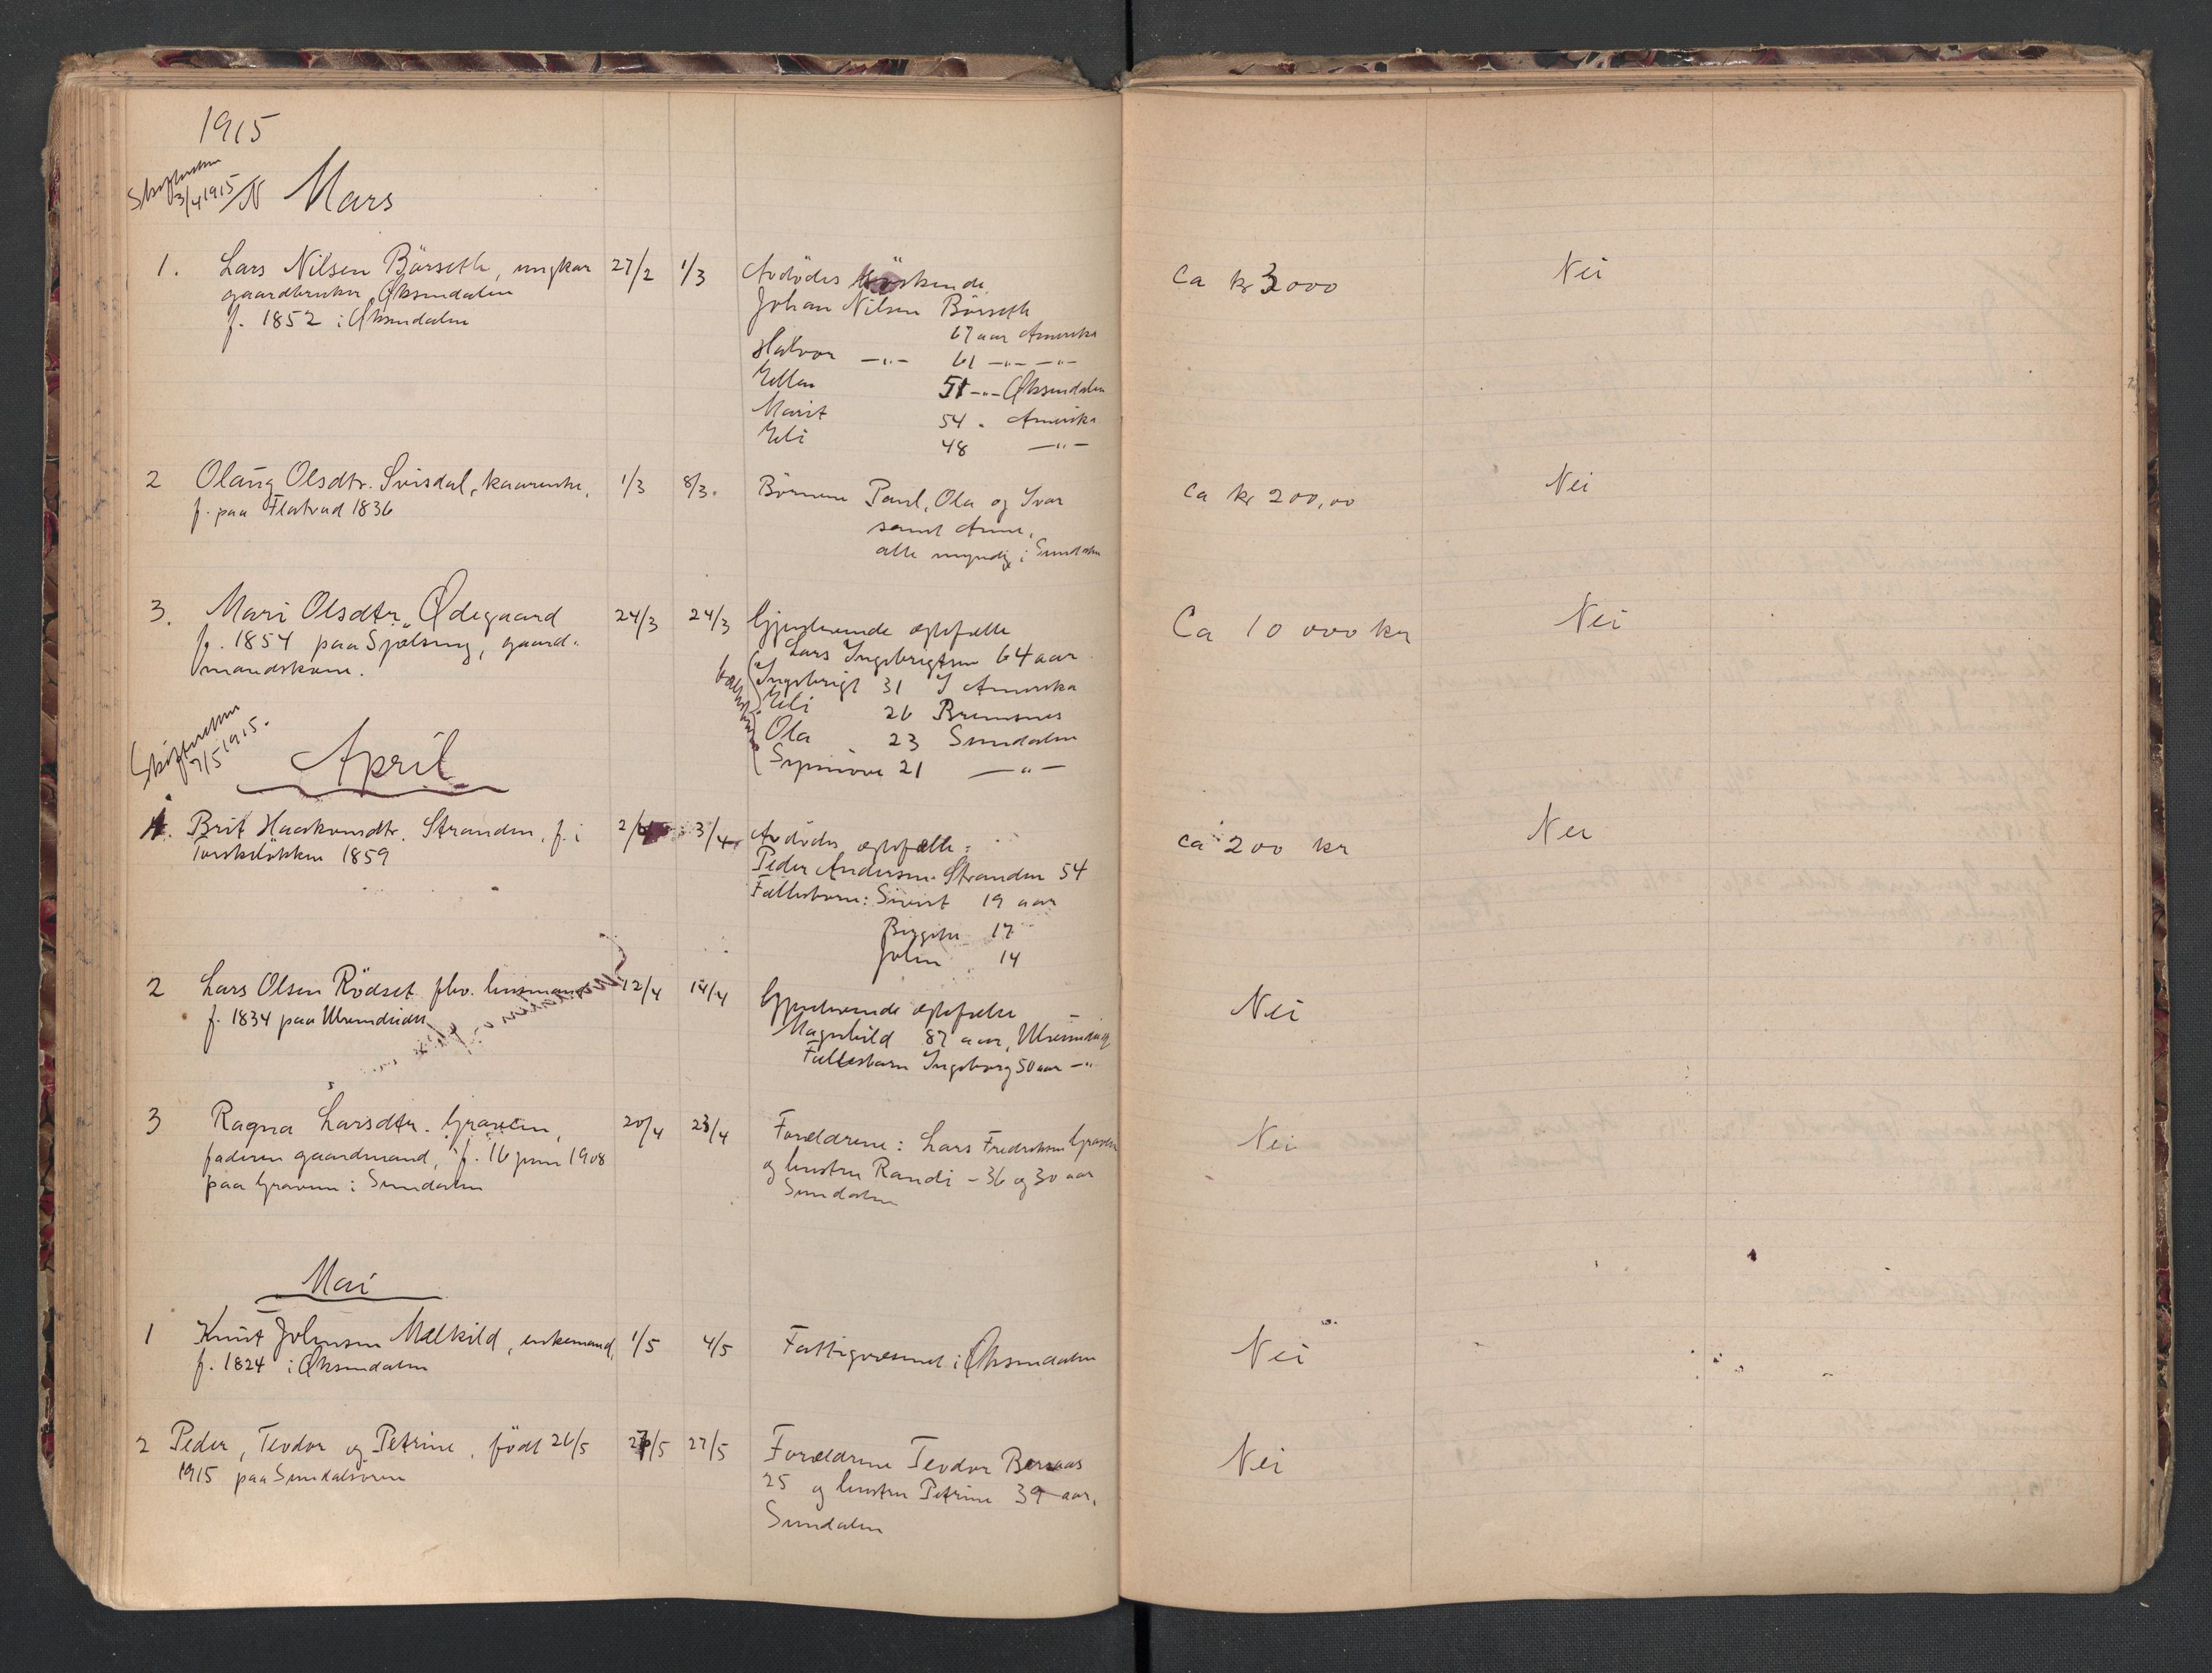 1915
Skifteretten
3/4 1915 N Mars
1. Lars Nilsen Börseth, ungkar 27/2 1/3 Avdödes söskende Ca kr 3000 Nei
gaardbruker, Øksendalen
f. 1852 i Øksendalen
Johan Nilsen Börseth
67 aar Amerika
Halvor —"— 61 —"— —"—
Ellen 51 —"— Øksendalen
Marit 54 " Amerika
Eli 48 —"—
2 Olaug Olsdtr. Svisdal, kaarenke, 1/3 8/3. Börnene Paul, Ola og Ivar Ca kr 200,00 Nei
f. paa Flatvad 1836
samt Anne,
alle myndig i Sundalen
3. Mari Olsdtr. Ødegaard 24/3 24/3 Gjenlevende egtefælle Ca 10 000 kr Nei
f. 1854 paa Sjølseng, gaard-
mandskone.
Lars Ingebrigtsen 64 aar
Ingebrigt 31 I Amerika
Eli 26 Bremsnes
Ola 23 Sundalen
Synnöve 21 —"—
Skifteretten
7/5 1915.
April
1. Brit Haakonsdtr. Stranden, f. i 2/4 3/4 Avdödes egtefælle: Ca 200 kr Nei
Torskelökken 1859
Peder Andersen Stranden 54
Fællesbarn: Sivert 19 aar
Birgitte 17
John 14
2 Lars Olsen Rödset fhv. husmand 12/4 14/4 Gjenlevende egtefælle Nei
f. 1834 paa
Magnhild 87 aar,
Fællesbarn Ingeborg 50 aar —"—
3 Ragna Larsdtr. Gravem, 20/4 23/4 Forældrene: Lars Fredriksen Gravem Nei
faderen gaardmand, f. 16 juni 1908
paa Gravem i Sundalen
og hustru Randi – 36 og 30 aar
Sundalen
Mai
1 Knut Johnsen Mælkild, enkemand, 1/5 4/5 Fattigvæsenet i Øksendalen Nei
f. 1824 i Øksendalen
2 Peder, Teodor og Petrine, födt 26/5 27/5 27/5 Forældrene Teodor Nei
1915 paa Sundalsören
25 og hustru Petrine 39 aar,
Sundalen